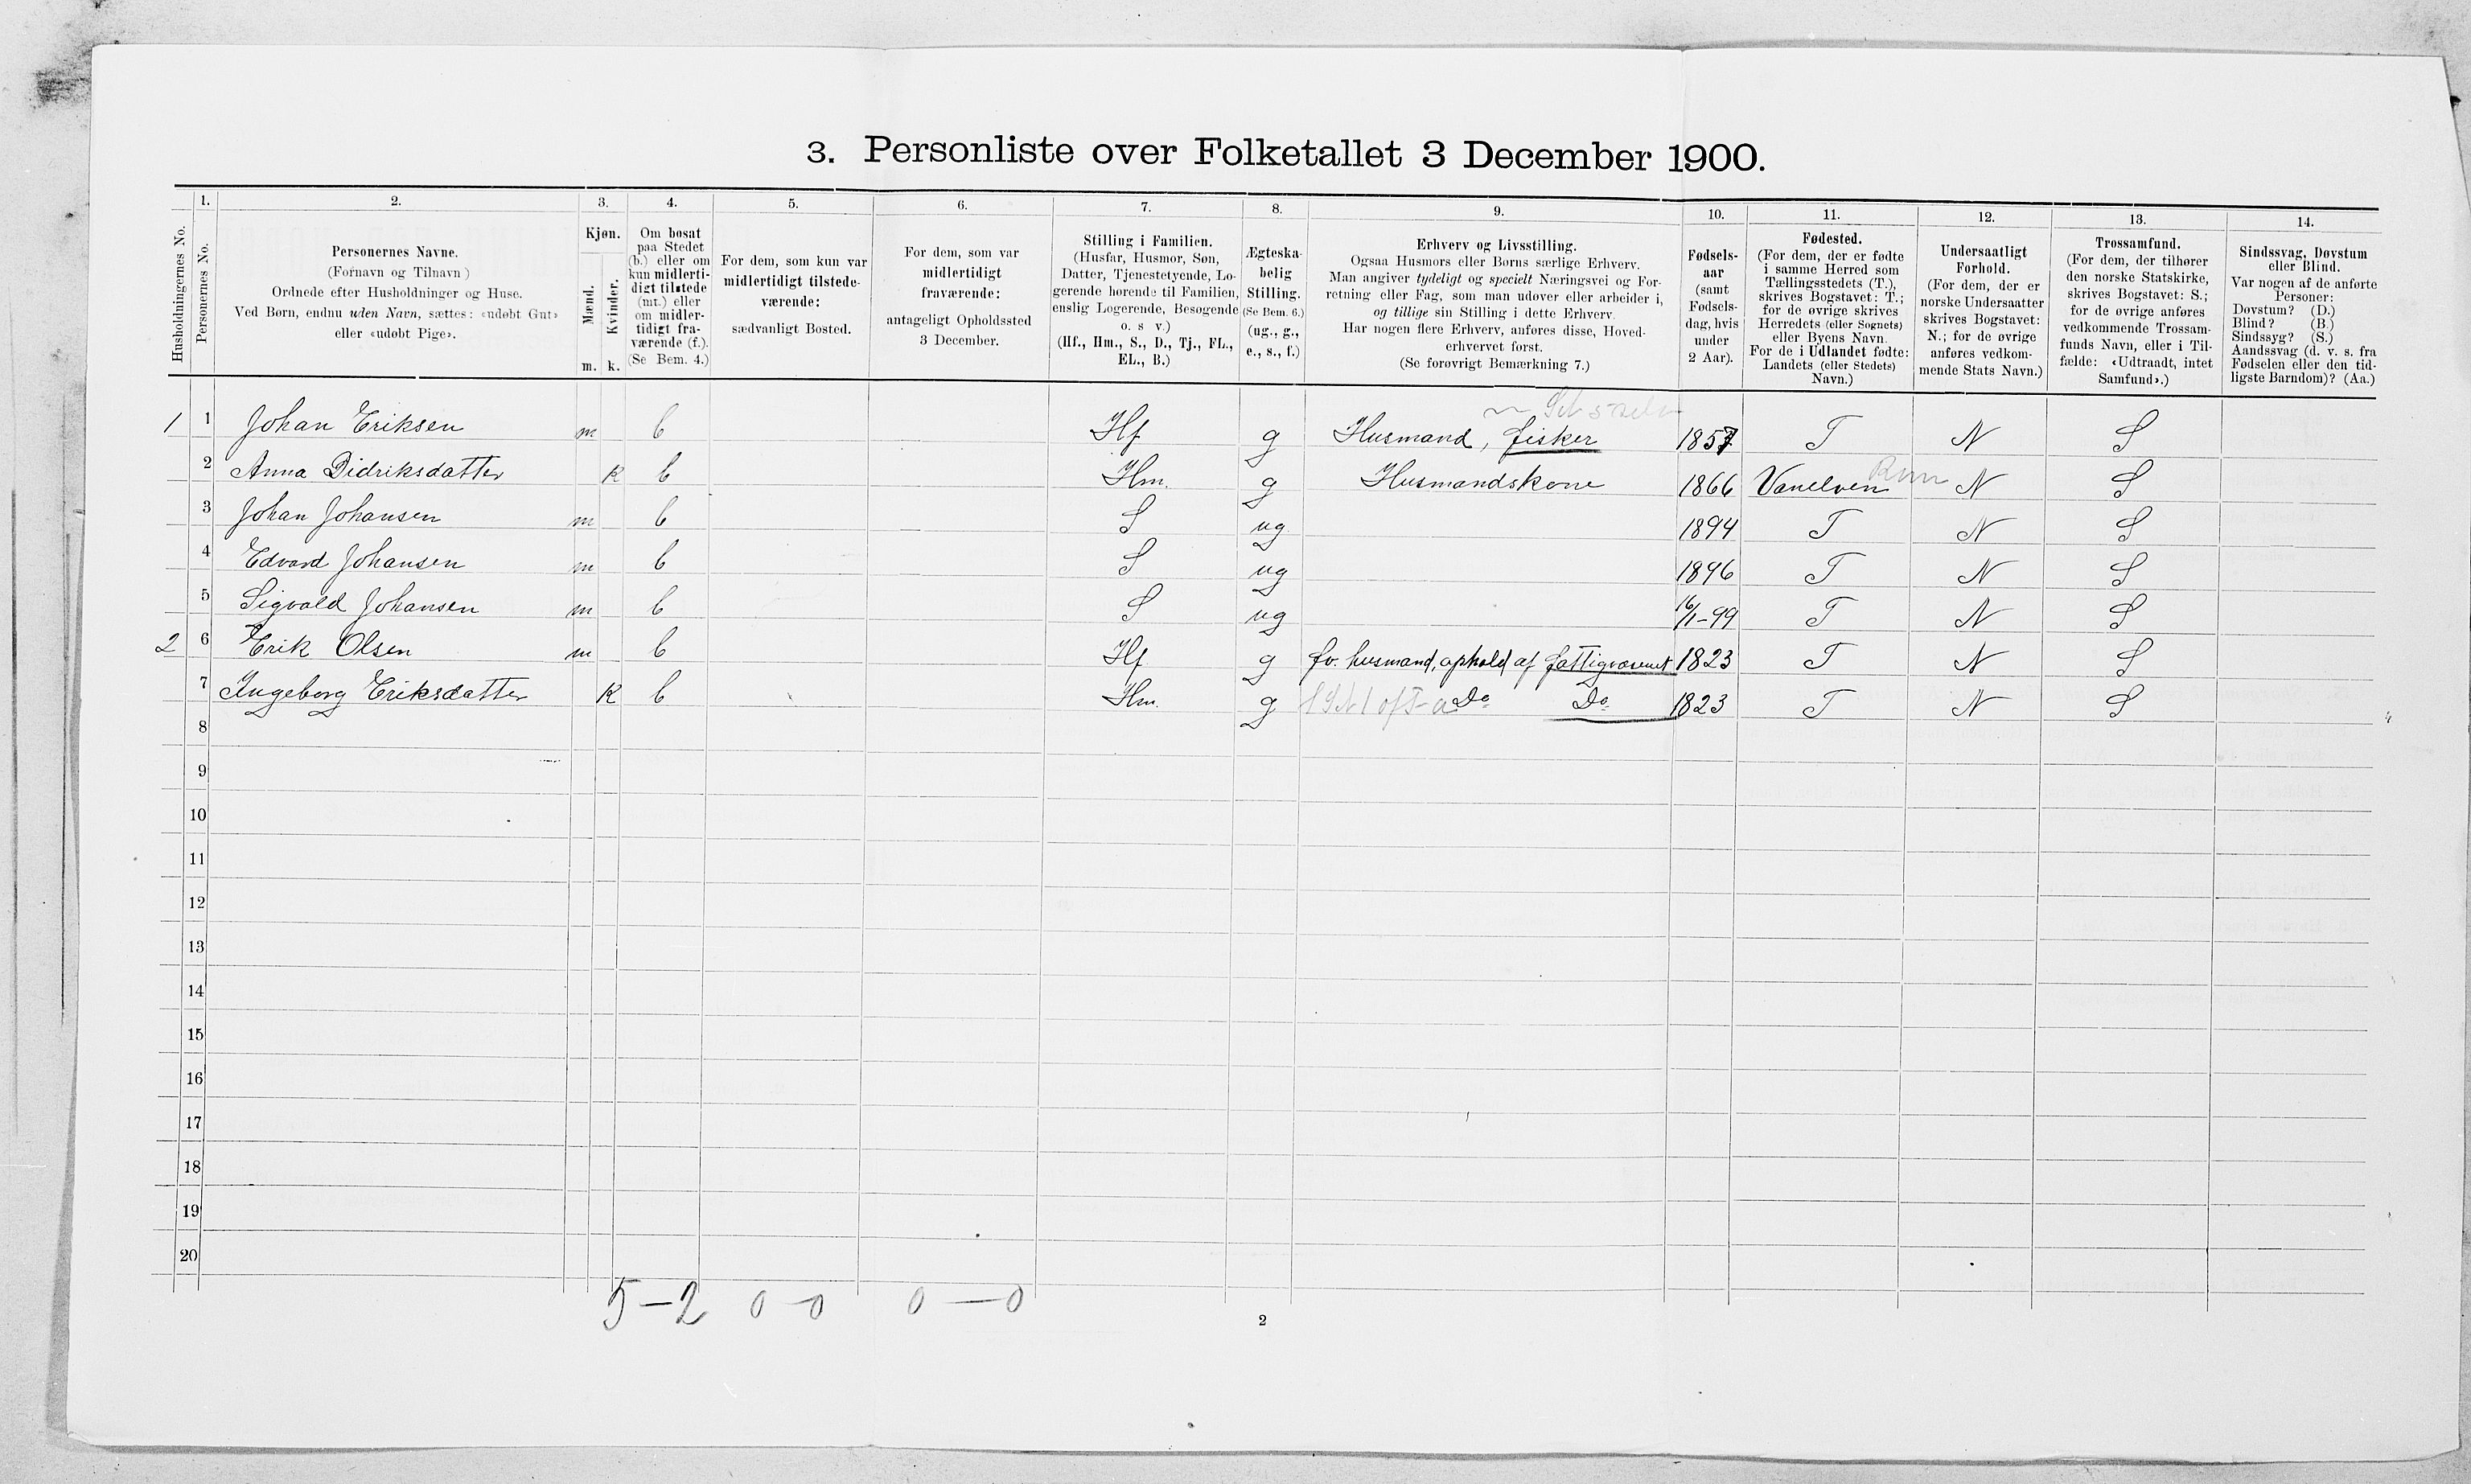 3. Personliste over Folketallet 3 December 1900.
Husholdningernes No.
1.
Personernes No.
2.
Personernes Navne.
(Fornavn og Tilnavn)
Ordnede efter Husholdninger og Huse.
Ved Børn, endnu uden Navn, sættes: «udøbt Gut»
eller «udøbt Pige».
3.
Kjøn.
Mænd.
Kvinder.
m. k.
4.
Om bosat
paa Stedet
(b.) eller om
kun midlerti-
digt tilstede
(mt.) eller
om midler-
tidigt fra-
værende (f.).
(Se Bem. 4.)
5.
For dem, som kun var
midlertidigt tilstede-
værende:
sædvanligt Bosted.
6.
For dem, som var
midlertidigt
fraværende:
antageligt Opholdssted
3 December.
7.
Stilling i Familien.
(Husfar, Husmor, Søn,
Datter, Tjenestetyende, Lo-
gerende hørende til Familien,
enslig Logerende, Besøgende
o. s v.)
(Hf., Hm., S., D., Tj., FL.,
EL., B.)
8.
Ægteska-
belig
Stilling.
(Se Bem. 6.)
(ug., g.,
e., s., f.)
9.
Erhverv og Livsstilling.
Ogsaa Husmors eller Børns særlige Erhverv.
Man angiver tydeligt og specielt Næringsvei og For-
retning eller Fag, som man udøver eller arbeider i,
og tillige sin Stilling i dette Erhverv.
Har nogen flere Erhverv, anføres disse, Hoved-
erhvervet først.
(Se forøvrigt Bemærkning 7.)
10.
Fødsels-
aar
(samt
Fødsels-
dag, hvis
under
2 Aar).
11.
Fødested.
(For dem, der er fødte
i samme Herred som
Tællingsstedets (T.),
skrives Bogstavet: T.;
for de øvrige skrives
Herredets (eller Sognets)
eller Byens Navn.
For de i Udlandet fødte:
Landets (eller Stedets)
Navn.)
12.
Undersaatligt
Forhold.
(For dem, der er
norske Undersaatter
skrives Bogstavet:
N.; for de øvrige
anføres vedkom-
mende Stats Navn.)
13.
Trossamfund.
(For dem, der tilhører
den norske Statskirke,
skrives Bogstavet: S.;
for de øvrige anføres
vedkommende Trossam-
funds Navn, eller i Til-
fælde: «Udtraadt, intet
Samfund».)
14.
Sindssvag, Døvstum
eller Blind.
Var nogen af de anførte
Personer:
Døvstum? (D.)
Blind? (B.)
Sindssyg? (S.)
Aandssvag (d. v. s. fra
Fødselen eller den tid-
ligste Barndom)? (Aa.)
1 1 Johan Eriksen m b Hf g Husmand, fisker 1857 T N S
2 Anna Didriksdatter k b Hm. g Husmandskone 1866 Vanelven N S
3 Johan Johansen m b S ug 1894 T N S
4 Edvard Johansen m b S ug 1896 T N S
5 Sigvald Johansen m b S ug 16/1-99 T N S
2 6 Erik Olsen m b Hf g fv. husmand, ophold af fattigvæsenet 1823 T N S
7 Ingeborg Eriksdatter k b Hm. g Do Do 1823 T N S
8
9
10
11
12
13
14
15
16
17
18
19
20
5-2 0-0 0-0
2